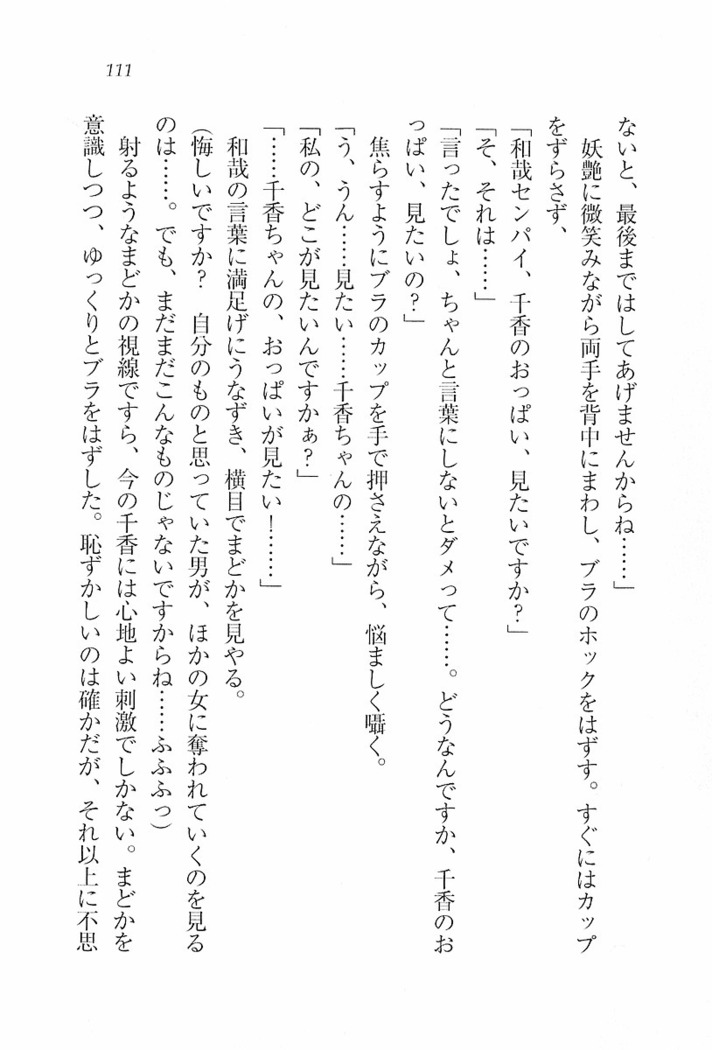 111
ないと、最後まではしてあげませんからね……」
　妖艶に微笑みながら両手を背中にまわし、ブラのホックをはずす。すぐにはカップ
をずらさず、
「和哉センパイ、千香のおっぱい、見たいですか？」
「そ、それは……」
「言ったでしょ、ちゃんと言葉にしないとダメって……。どうなんですか、千香のお
っぱい、見たいの？」
　焦らすようにブラのカップを手で押さえながら、悩ましく囁く。
「う、うん……見たい……千香ちゃんの……」
「私の、どこが見たいんですかぁ？」
「……千香ちゃんの、おっぱいが見たい！……」
　和哉の言葉に満足げにうなずき、横目でまどかを見やる。
（悔しいですか？　自分のものと思っていた男が、ほかの女に奪われていくのを見る
のは……。でも、まだまだこんなものじゃないですからね……ふふふっ）
　射るようなまどかの視線ですら、今の千香には心地よい刺激でしかない。まどかを
意識しつつ、ゆっくりとブラをはずした。恥ずかしいのは確かだが、それ以上に不思